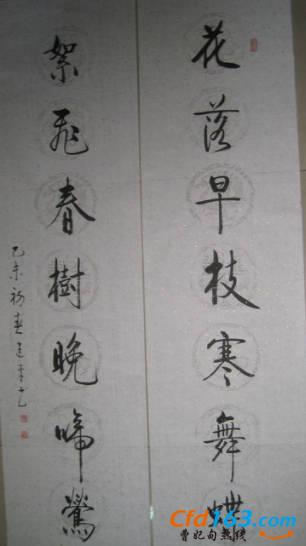 花落早枝寒舞蝶
絮飛春樹晚啼鶯
乙未初春
Cfd163.com
曹妃甸热线